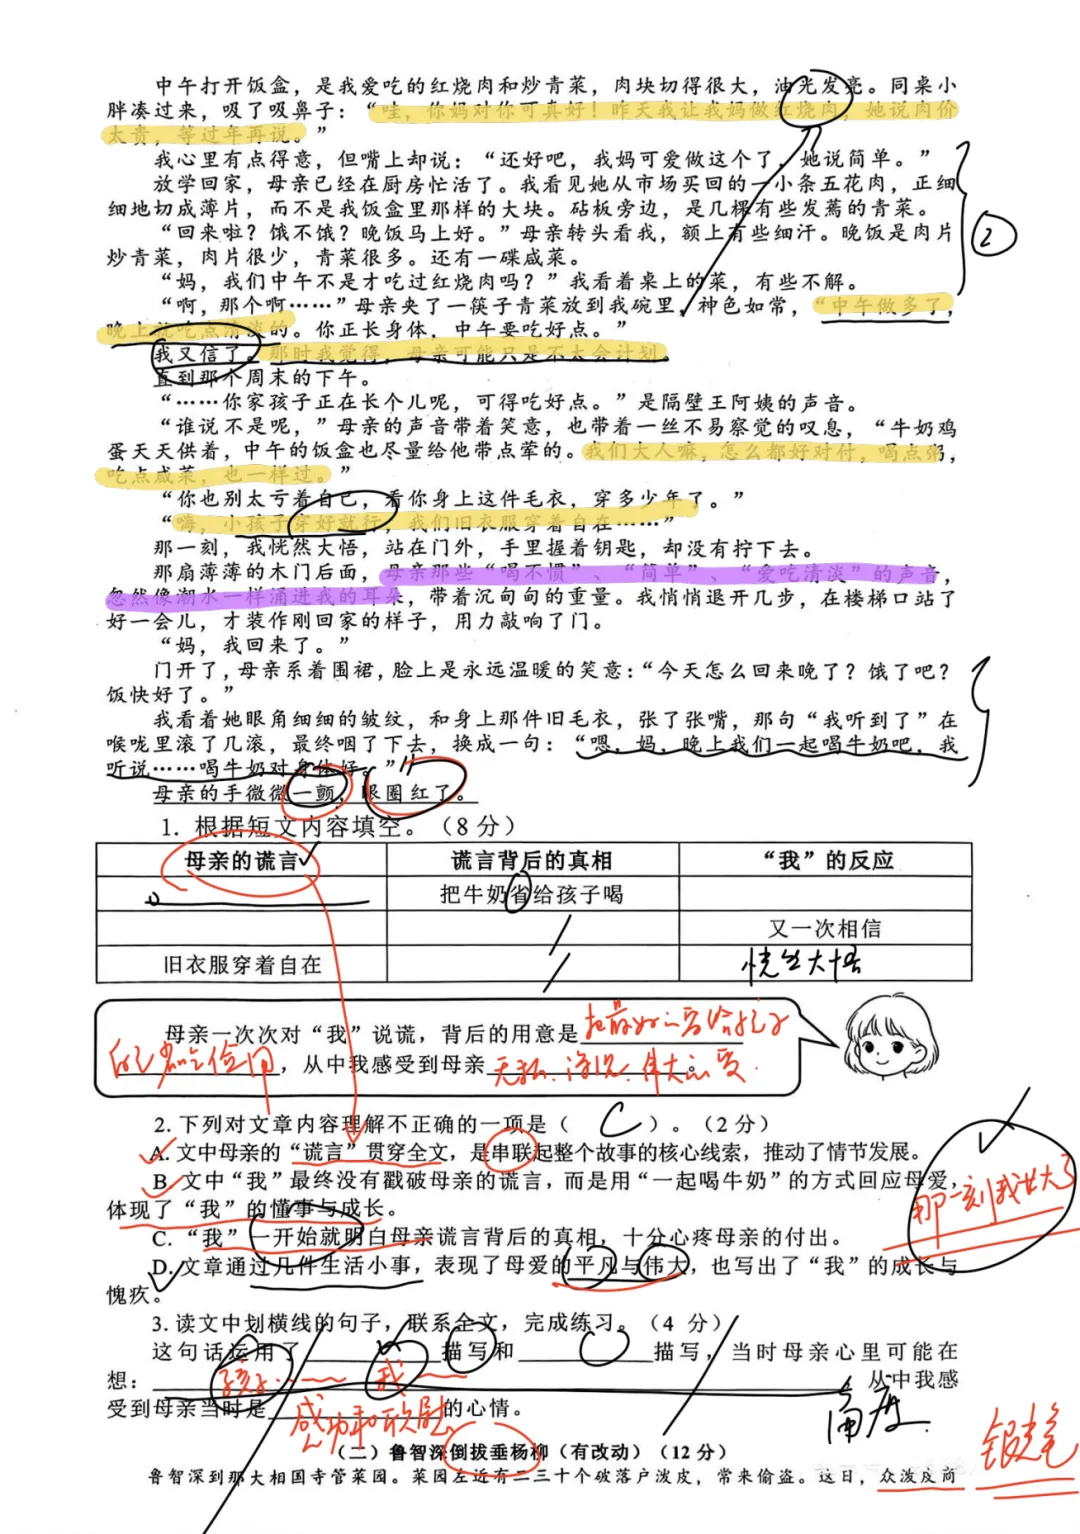 中午打开饭盒，是我爱吃的红烧肉和炒青菜，肉块切得很大，油光发亮。同桌小
胖凑过来，吸了吸鼻子：“哇，你妈对你可真好！昨天我让我妈做红烧肉，她说肉价
太贵，等过年再说。”
我心里有点得意，但嘴上却说：“还好吧，我妈可爱做这个了，她说简单。”
放学回家，母亲已经在厨房忙活了。我看见她从市场买回的一小条五花肉，正细
细地切成薄片，而不是我饭盒里那样的大块。砧板旁边，是几棵有些发蔫的青菜。
“回来啦？饿不饿？晚饭马上好。”母亲转头看我，额上有些细汗。晚饭是肉片
炒青菜，肉片很少，青菜很多。还有一碟咸菜。
②
“妈，我们中午不是才吃过红烧肉吗？”我看着桌上的菜，有些不解。
“啊，那个啊……”母亲夹了一筷子青菜放到我碗里，神色如常，“中午做多了，
晚上就吃点清淡的。你正长身体，中午要吃好点。”
我又信了。那时我觉得，母亲可能只是不太会计划。
直到那个周末的下午。
“……你家孩子正在长个儿呢，可得吃好点。”是隔壁王阿姨的声音。
“谁说不是呢，”母亲的声音带着笑意，也带着一丝不易察觉的叹息，“牛奶鸡
蛋天天供着，中午的饭盒也尽量给他带点荤的。我们大人嘛，怎么都好对付，喝点粥，
吃点咸菜，也一样过。”
“你也别太亏着自己，看你身上这件毛衣，穿多少年了。”
“嗨，小孩子穿好就行，我们旧衣服穿着自在……”
那一刻，我恍然大悟，站在门外，手里握着钥匙，却没有拧下去。
那扇薄薄的木门后面，母亲那些“喝不惯”、“简单”、“爱吃清淡”的声音，
忽然像潮水一样涌进我的耳朵，带着沉甸甸的重量。我悄悄退开几步，在楼梯口站了
好一会儿，才装作刚回家的样子，用力敲响了门。
“妈，我回来了。”
门开了，母亲系着围裙，脸上是永远温暖的笑意：“今天怎么回来晚了？饿了吧？
饭快好了。”
我看着她眼角细细的皱纹，和身上那件旧毛衣，张了张嘴，那句“我听到了”在
喉咙里滚了几滚，最终咽了下去，换成一句：“嗯，妈，晚上我们一起喝牛奶吧，我
听说……喝牛奶对身体好。”
母亲的手微微一颤，眼圈红了。
1. 根据短文内容填空。（8分）
母亲的谎言 谎言背后的真相 “我”的反应
把牛奶省给孩子喝
又一次相信
旧衣服穿着自在 恍然大悟
母亲一次次对“我”说谎，背后的用意是把最好的留给孩子
自己省吃俭用，从中我感受到母亲无私、深沉、伟大的爱。
2. 下列对文章内容理解不正确的一项是（ C ）。（2分）
A. 文中母亲的“谎言”贯穿全文，是串联起整个故事的核心线索，推动了情节发展。
B. 文中“我”最终没有戳破母亲的谎言，而是用“一起喝牛奶”的方式回应母爱，
体现了“我”的懂事与成长。
那一刻我长大了
C. “我”一开始就明白母亲谎言背后的真相，十分心疼母亲的付出。
D. 文章通过几件生活小事，表现了母爱的平凡与伟大，也写出了“我”的成长与
愧疚。
3. 读文中划横线的句子，联系全文，完成练习。（4 分）
这句话运用了 描写和 描写，当时母亲心里可能在
想： 孩子 我 从中我感
受到母亲当时是感动和欣慰的心情。
角度
（二）鲁智深倒拔垂杨柳（有改动）（12分）
鲁智深到那大相国寺管菜园。菜园左近有二三十个破落户泼皮，常来偷盗。这日，众泼皮商